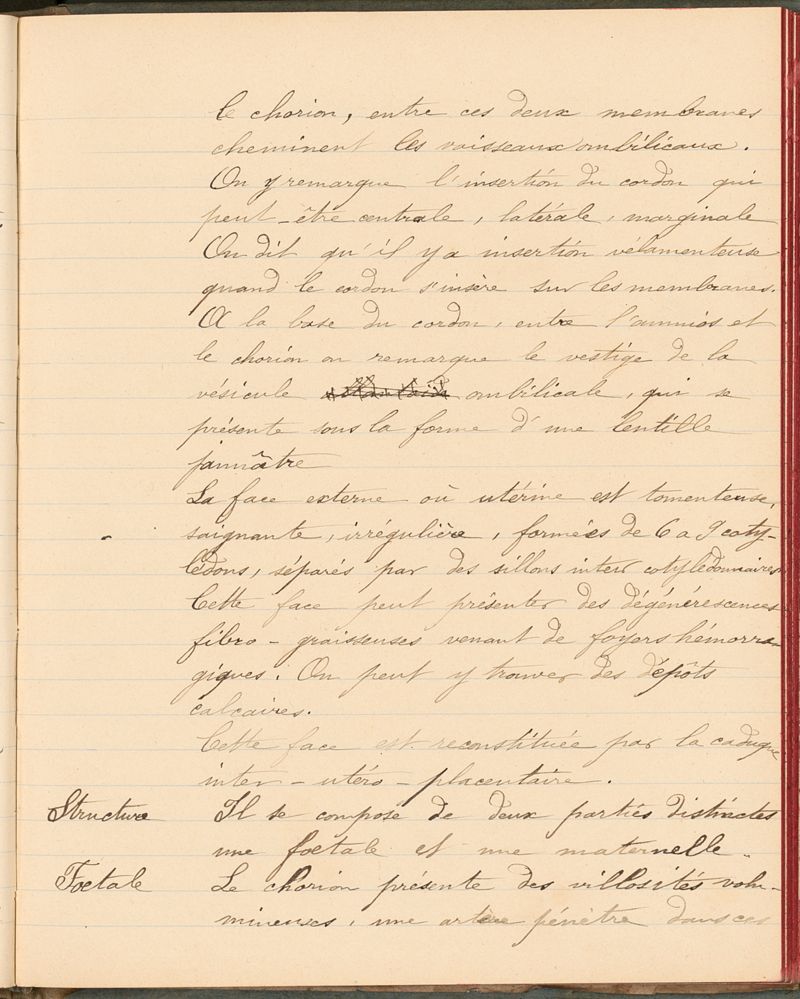 le chorion, entre ces deux membranes
cheminent les vaisseaux ombilicaux.
On y remarque l'insertion du cordon qui
peut-être centrale, latérale, marginale
On dit qu'il y a insertion vélamenteuse
quand le cordon s'insère sur les membranes.
A la base du cordon, entre l'amnios et
le chorion on remarque le vestige de la
vésicule ombilicale, qui se
présente sous la forme d'une lentille
jaunâtre
La face externe où utérine est tomenteuse,
saignante, irrégulière, formées de 6 a 9 coty-
lédons, séparés par des sillons inter cotylédonnaires
Cette face peut présenter des dégénérescences
fibro-graisseuses venant de foyers hémorra-
giques. On peut y trouver des dépôts
calcaires.
Cette face est reconstituée par la caduque
inter-utéro-placentaire.
Structure Il se compose de deux parties distinctes
une foetale et une maternelle.
Foetale Le chorion présente des villosités volu-
mineuses, une artère pénètre dans ces